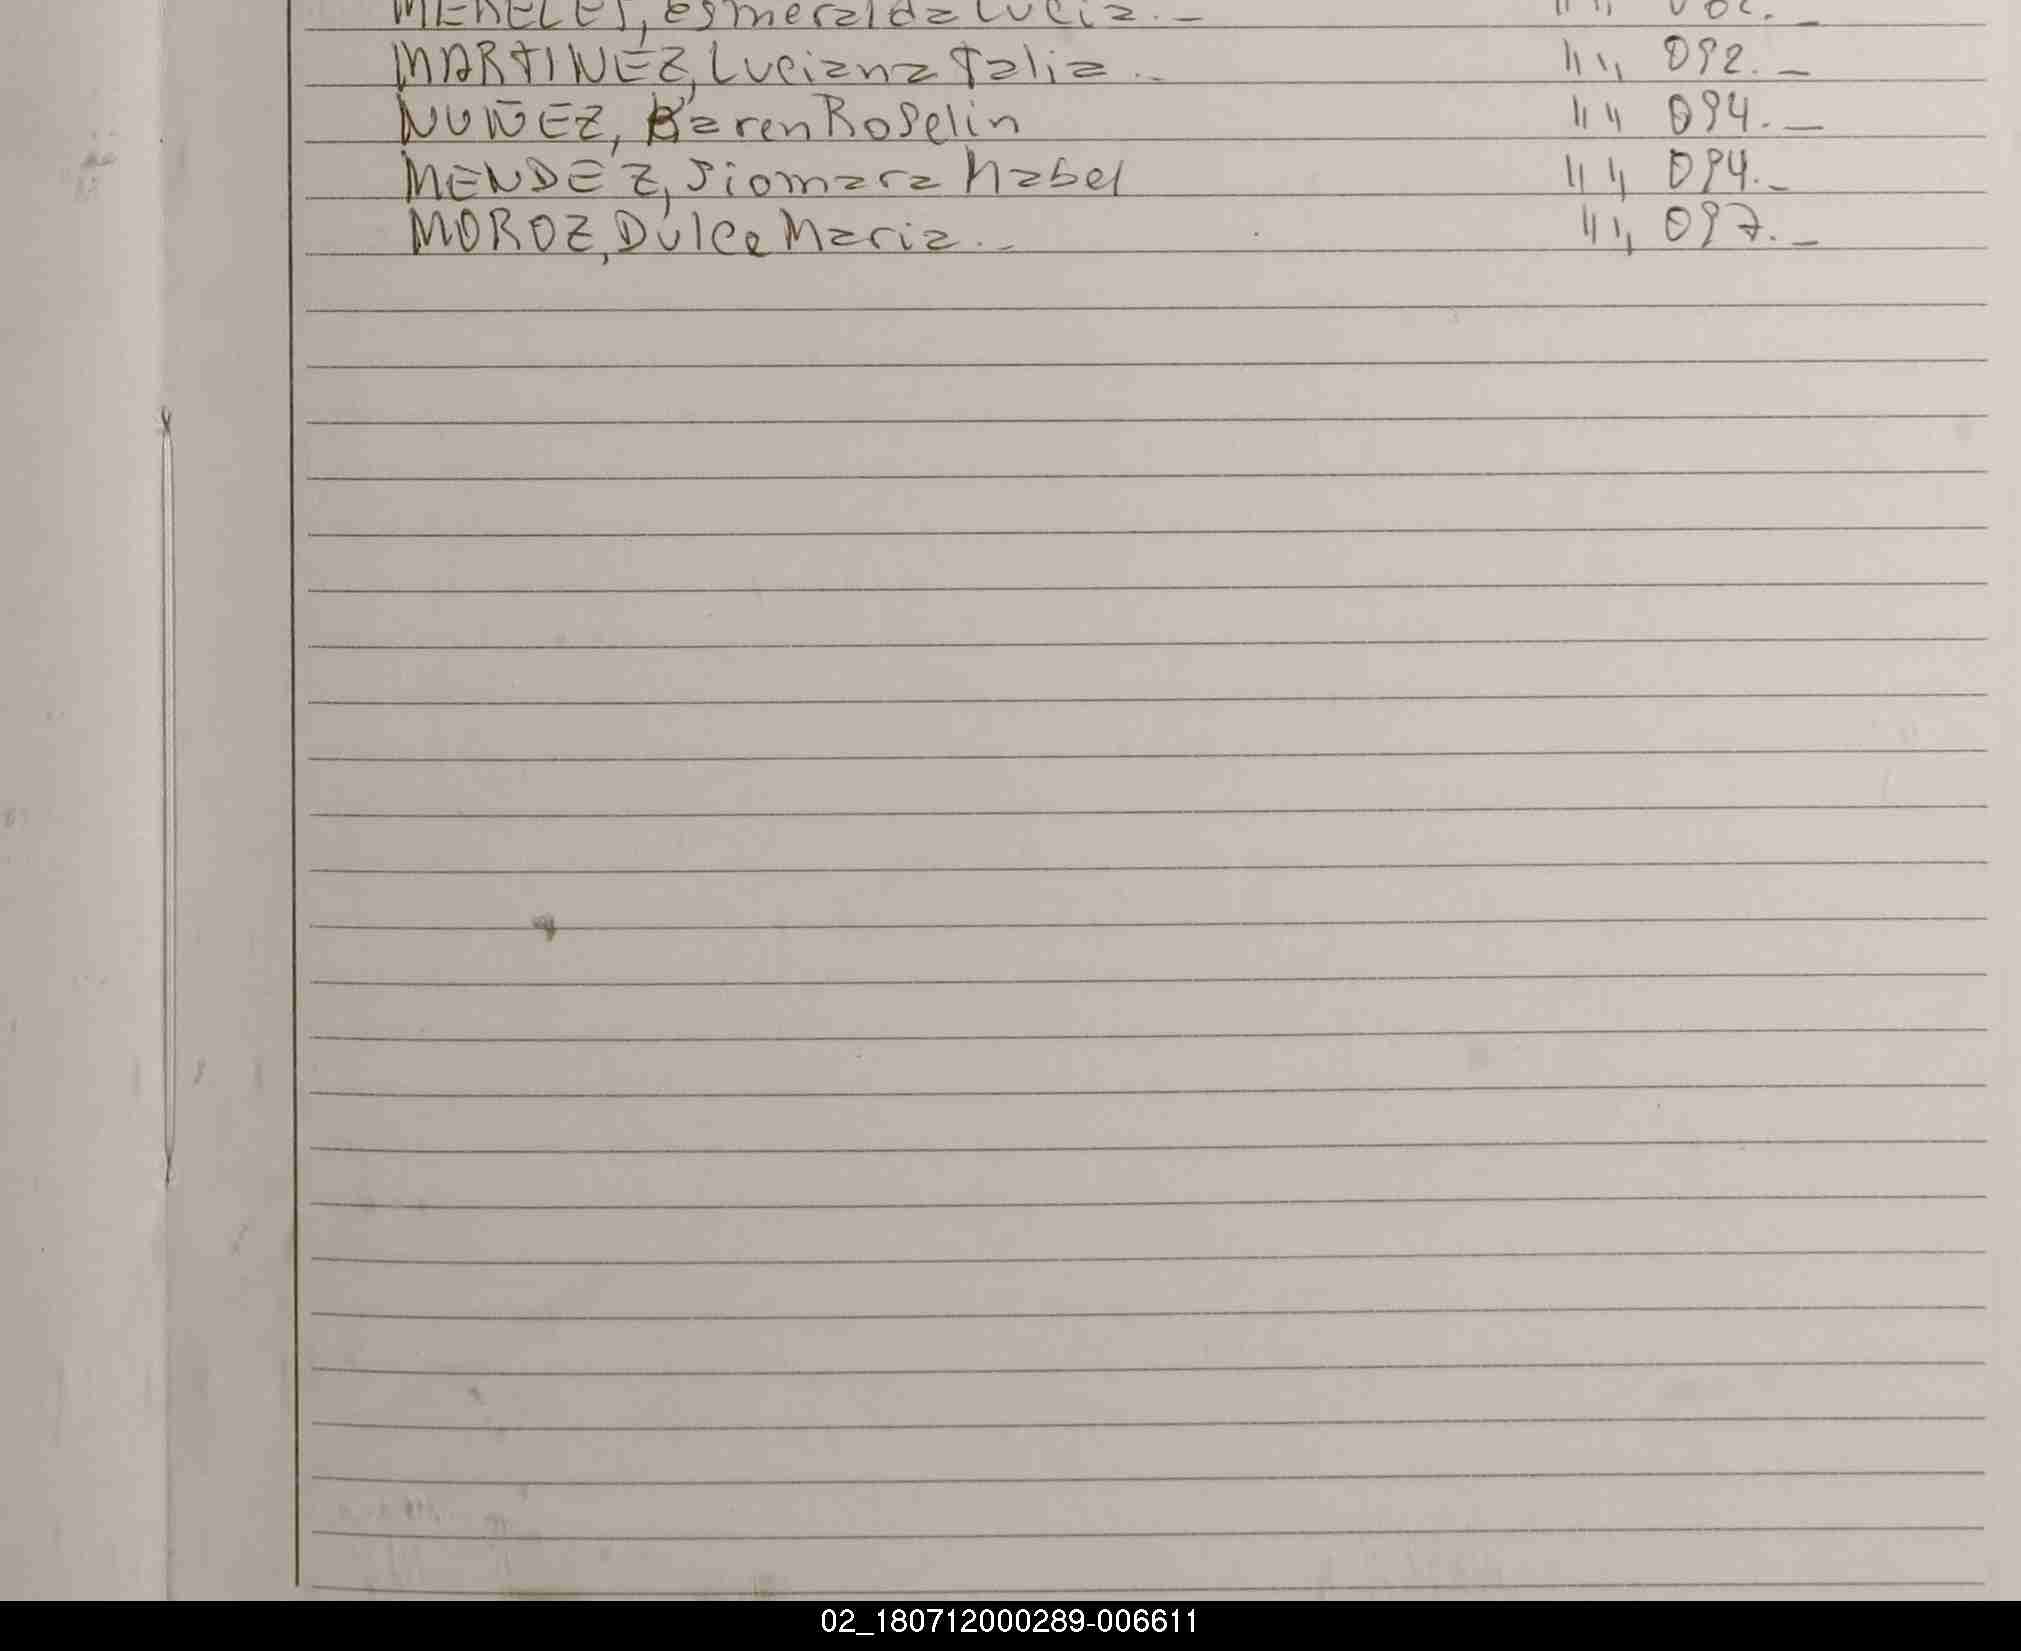 MERELES, esmeralda Lucia. _
MARTINEZ, Luciana Talia. _ " " 092. _
NUÑEZ, Karen Roselin " " 094. _
MENDEZ, Siomara Mabel " " 094. _
MOROZ, Dulce Maria. _ " " 097. _
02_180712000289-006611